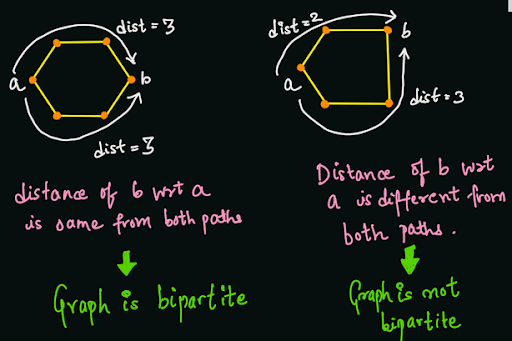 dist = 3
a
b
dist = 3
distance of b wrt a
is same from both paths
Graph is bipartite
dist = 2
b
a
dist = 3
Distance of b wrt
a is different from
both paths.
Graph is not
bipartite